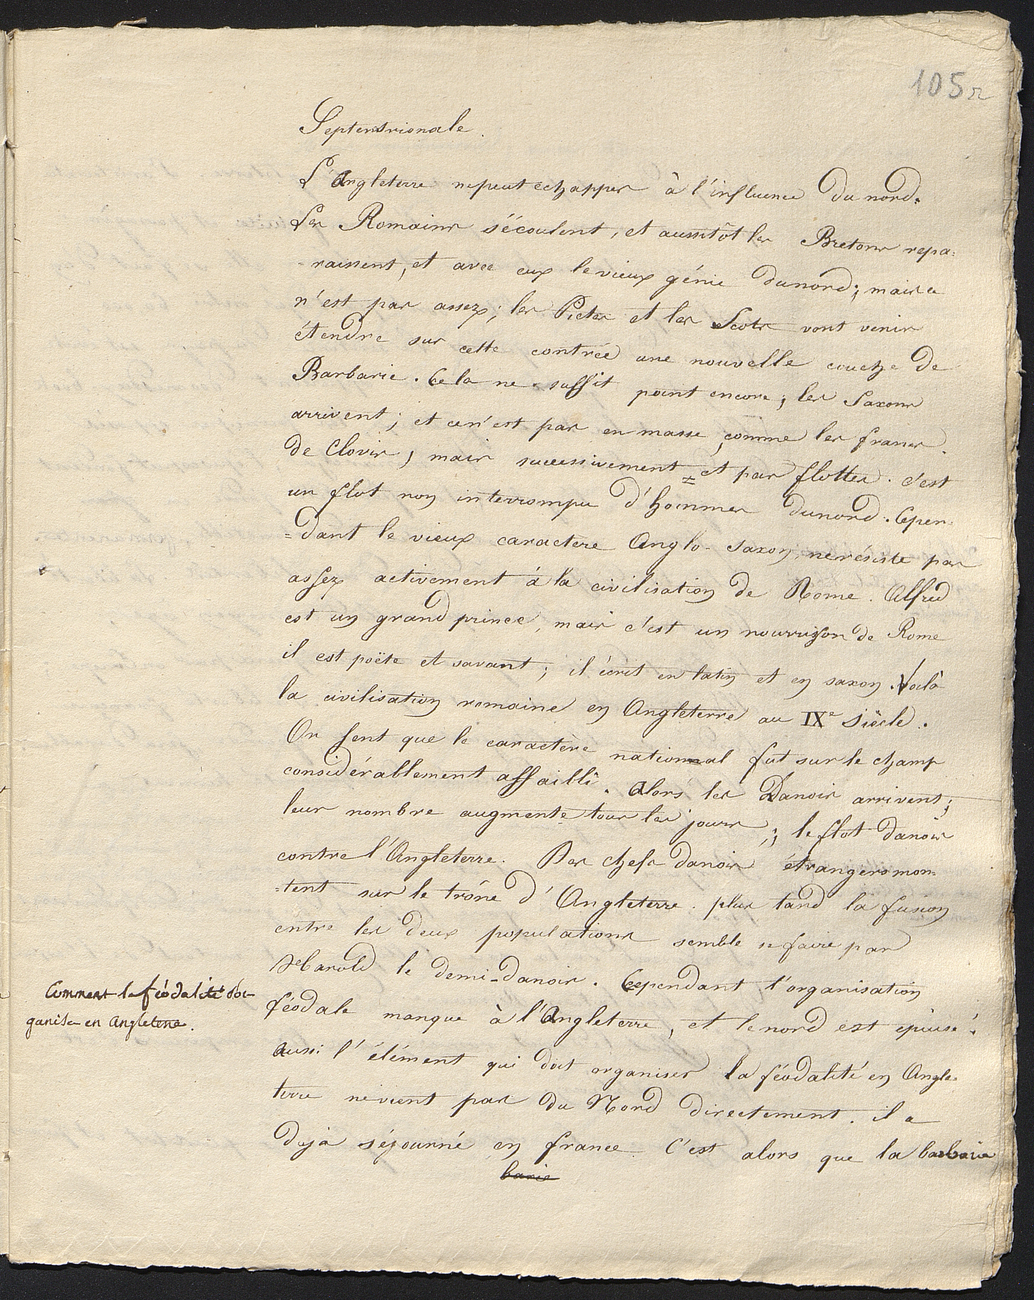 105 r
Septentrionale.
L'Angleterre ne peut echapper à l'influence du nord.
Les Romains s'écoulent, et aussitôt les Bretons repa-
raissent, et avec eux le vieux génie du nord; mais ce
n'est pas assez; les Pictes et les Scots vont venir
étendre sur cette contrée une nouvelle couche de
Barbarie. Cela ne suffit point encore; les Saxons
arrivent; et ce n'est pas en masse, comme les francs
de Clovis, mais successivement et par flottes. c'est
un flot non interrompu d'hommes du nord. Cepen-
=dant le vieux caractere Anglo-saxon, ne résiste pas
assez activement à la civilisation de Rome. Alfred
est un grand prince, mais c'est un nourrisson de Rome
il est poëte et savant; il écrit en latin et en saxon. Voilà
la civilisation romaine en Angleterre au IXe siècle.
On sent que le caractere national fut sur le champ
considérablement affaibli. Alors les Danois arrivent;
leur nombre augmente tous les jours; le flot danois
contre l'Angleterre. Des chefs danois étrangers mon-
=tent sur le trône d'Angleterre. plus tard la fusion
entre les deux populations semble se faire par
Harold le demi-danois. Cependant l'organisation
féodale manque à l'Angleterre, et le nord est épuisé.
Aussi l'élément qui doit organiser la féodalité en Angle-
terre ne vient pas du Nord directement. il a
dejà séjourné en france. C'est alors que la barbarie
baris
Comment la féodalité s'or-
ganise en Angleterre.